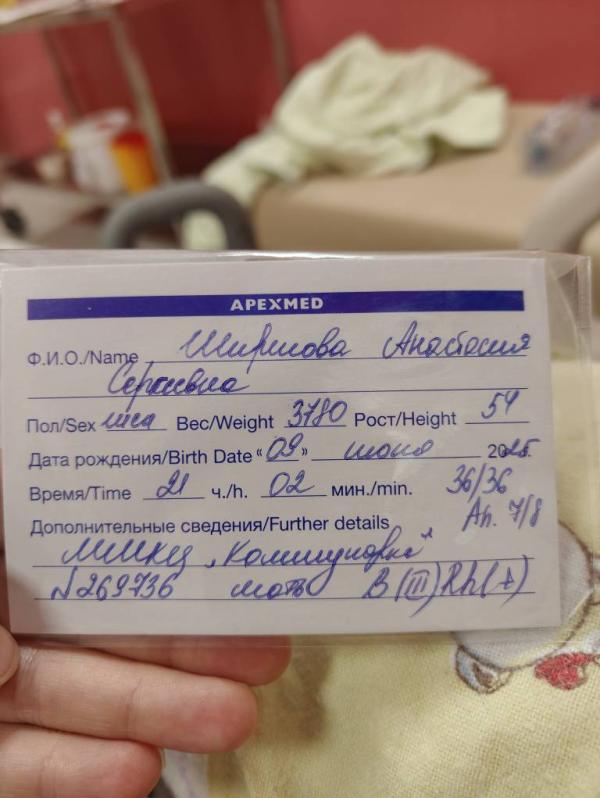 APEXMED
Ф.И.О./Name Ширшова Анастасия
Сергеевна
Пол/Sex Вес/Weight 3780 Рост/Height 54
Дата рождения/Birth Date “09” июня 2025.
Время/Time 21 ч./h. 02 мин./min. 36/36
Дополнительные сведения/Further details Ап. 7/8
ММКЦ „Коммунарка“
№269736 мать B (III) Rh(+)